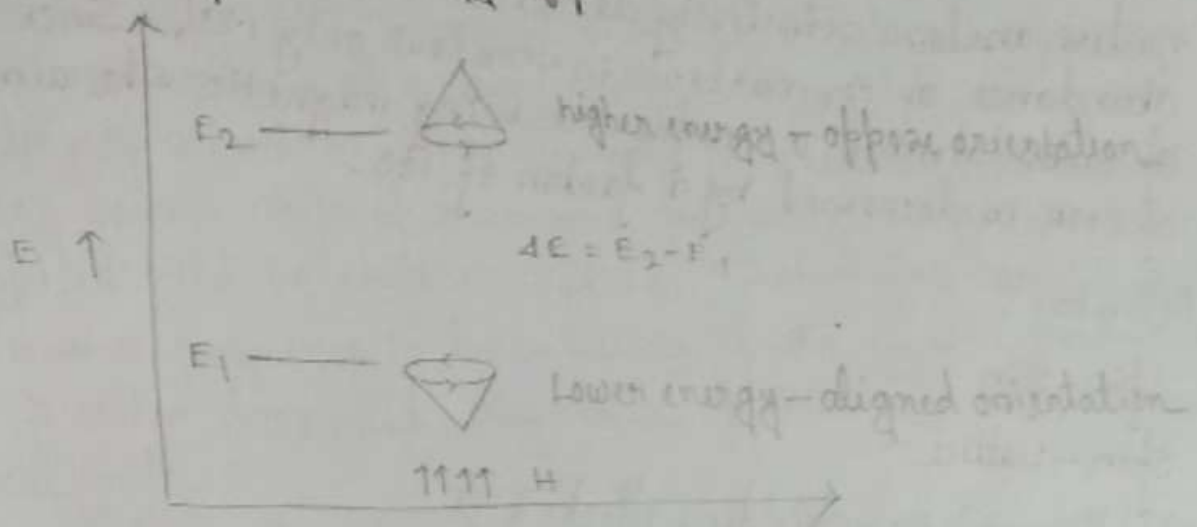 E₂ higher energy - oppose orientation
E ↑
ΔE = E₂ - E₁
E₁ Lower energy - aligned orientation
↑↑↑↑ H